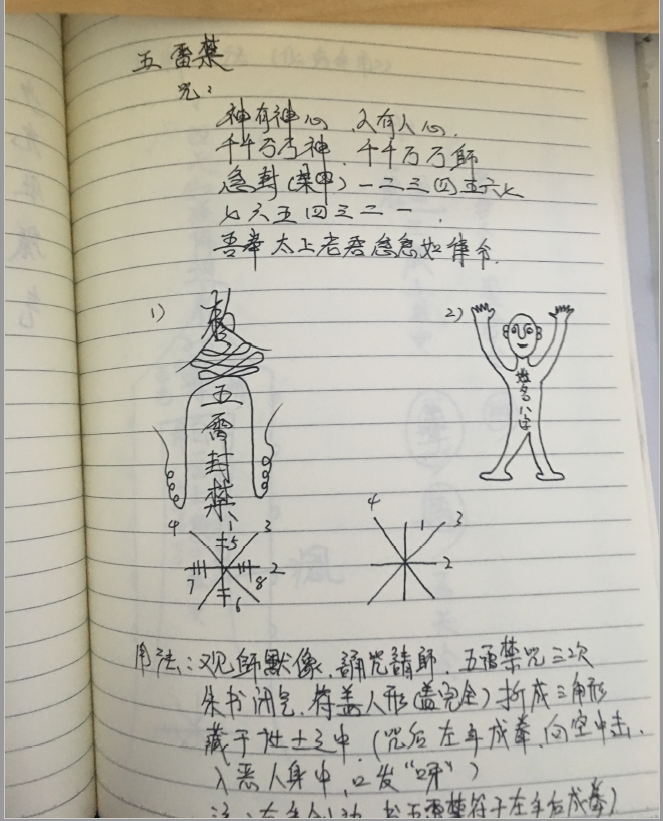 五雷禁
咒：
神有神心、人有人心.
千千万万神、千千万万師
急封(某甲)一二三四五六七
七六五四三二一.
吾奉太上老君急急如律令.
1)
2)
敕
五
雷
封
禁
姓
名
八
字
4 1 3
5
2
7 8
6
4 1 3
2
用法：观師默像、誦咒請師、五雷禁咒三次
朱书闭气、符盖人形(盖完全)折成三角形
藏于灶土之中.(咒后左手成拳、向空中击、
入恶人身中、口发“呀”)
五雷禁符于左手后成拳)